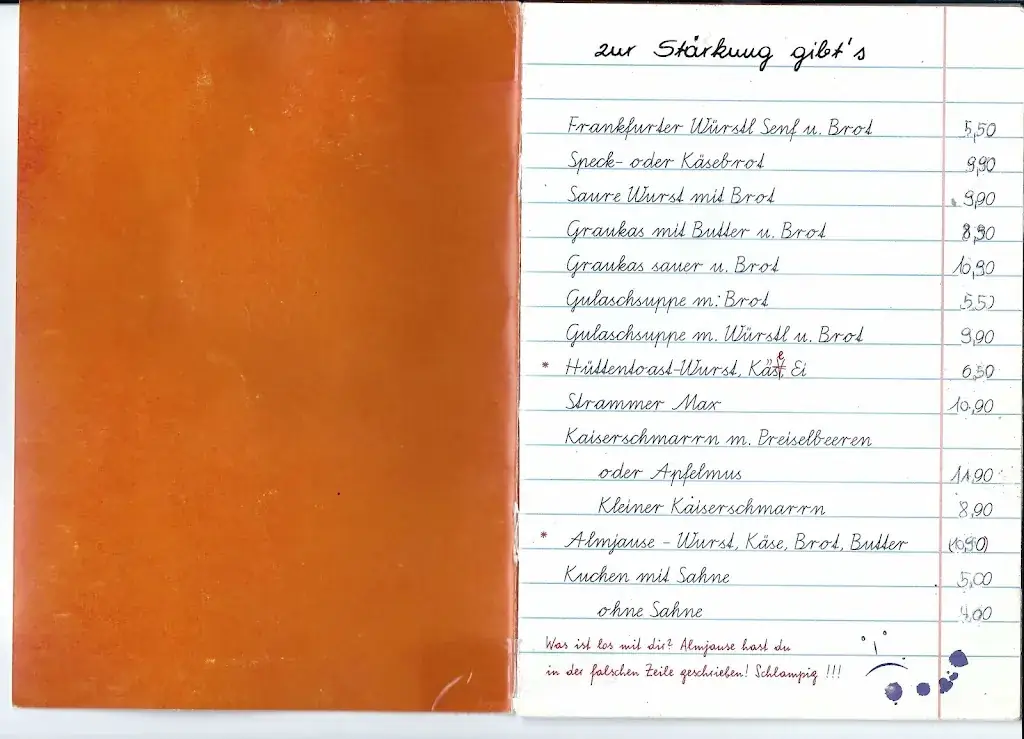 zur Stärkung gibt's
Frankfurter Würstl Senf u. Brot 5,50
Speck- oder Käsebrot 9,90
Saure Wurst mit Brot 9,90
Graukas mit Butter u. Brot 8,90
Graukas sauer u. Brot 10,90
Gulaschsuppe m. Brot 5,50
Gulaschsuppe m. Würstl u. Brot 9,90
* Hüttentoast-Wurst, Käse, Ei 6,50
Strammer Max 10,90
Kaiserschmarrn m. Preiselbeeren
oder Apfelmus 11,90
Kleiner Kaiserschmarrn 8,90
* Almjause - Wurst, Käse, Brot, Butter (10,90)
Kuchen mit Sahne 5,00
ohne Sahne 4,00
Was ist los mit dir? Almjause hast du
in der falschen Zeile geschrieben! Schlampig !!!